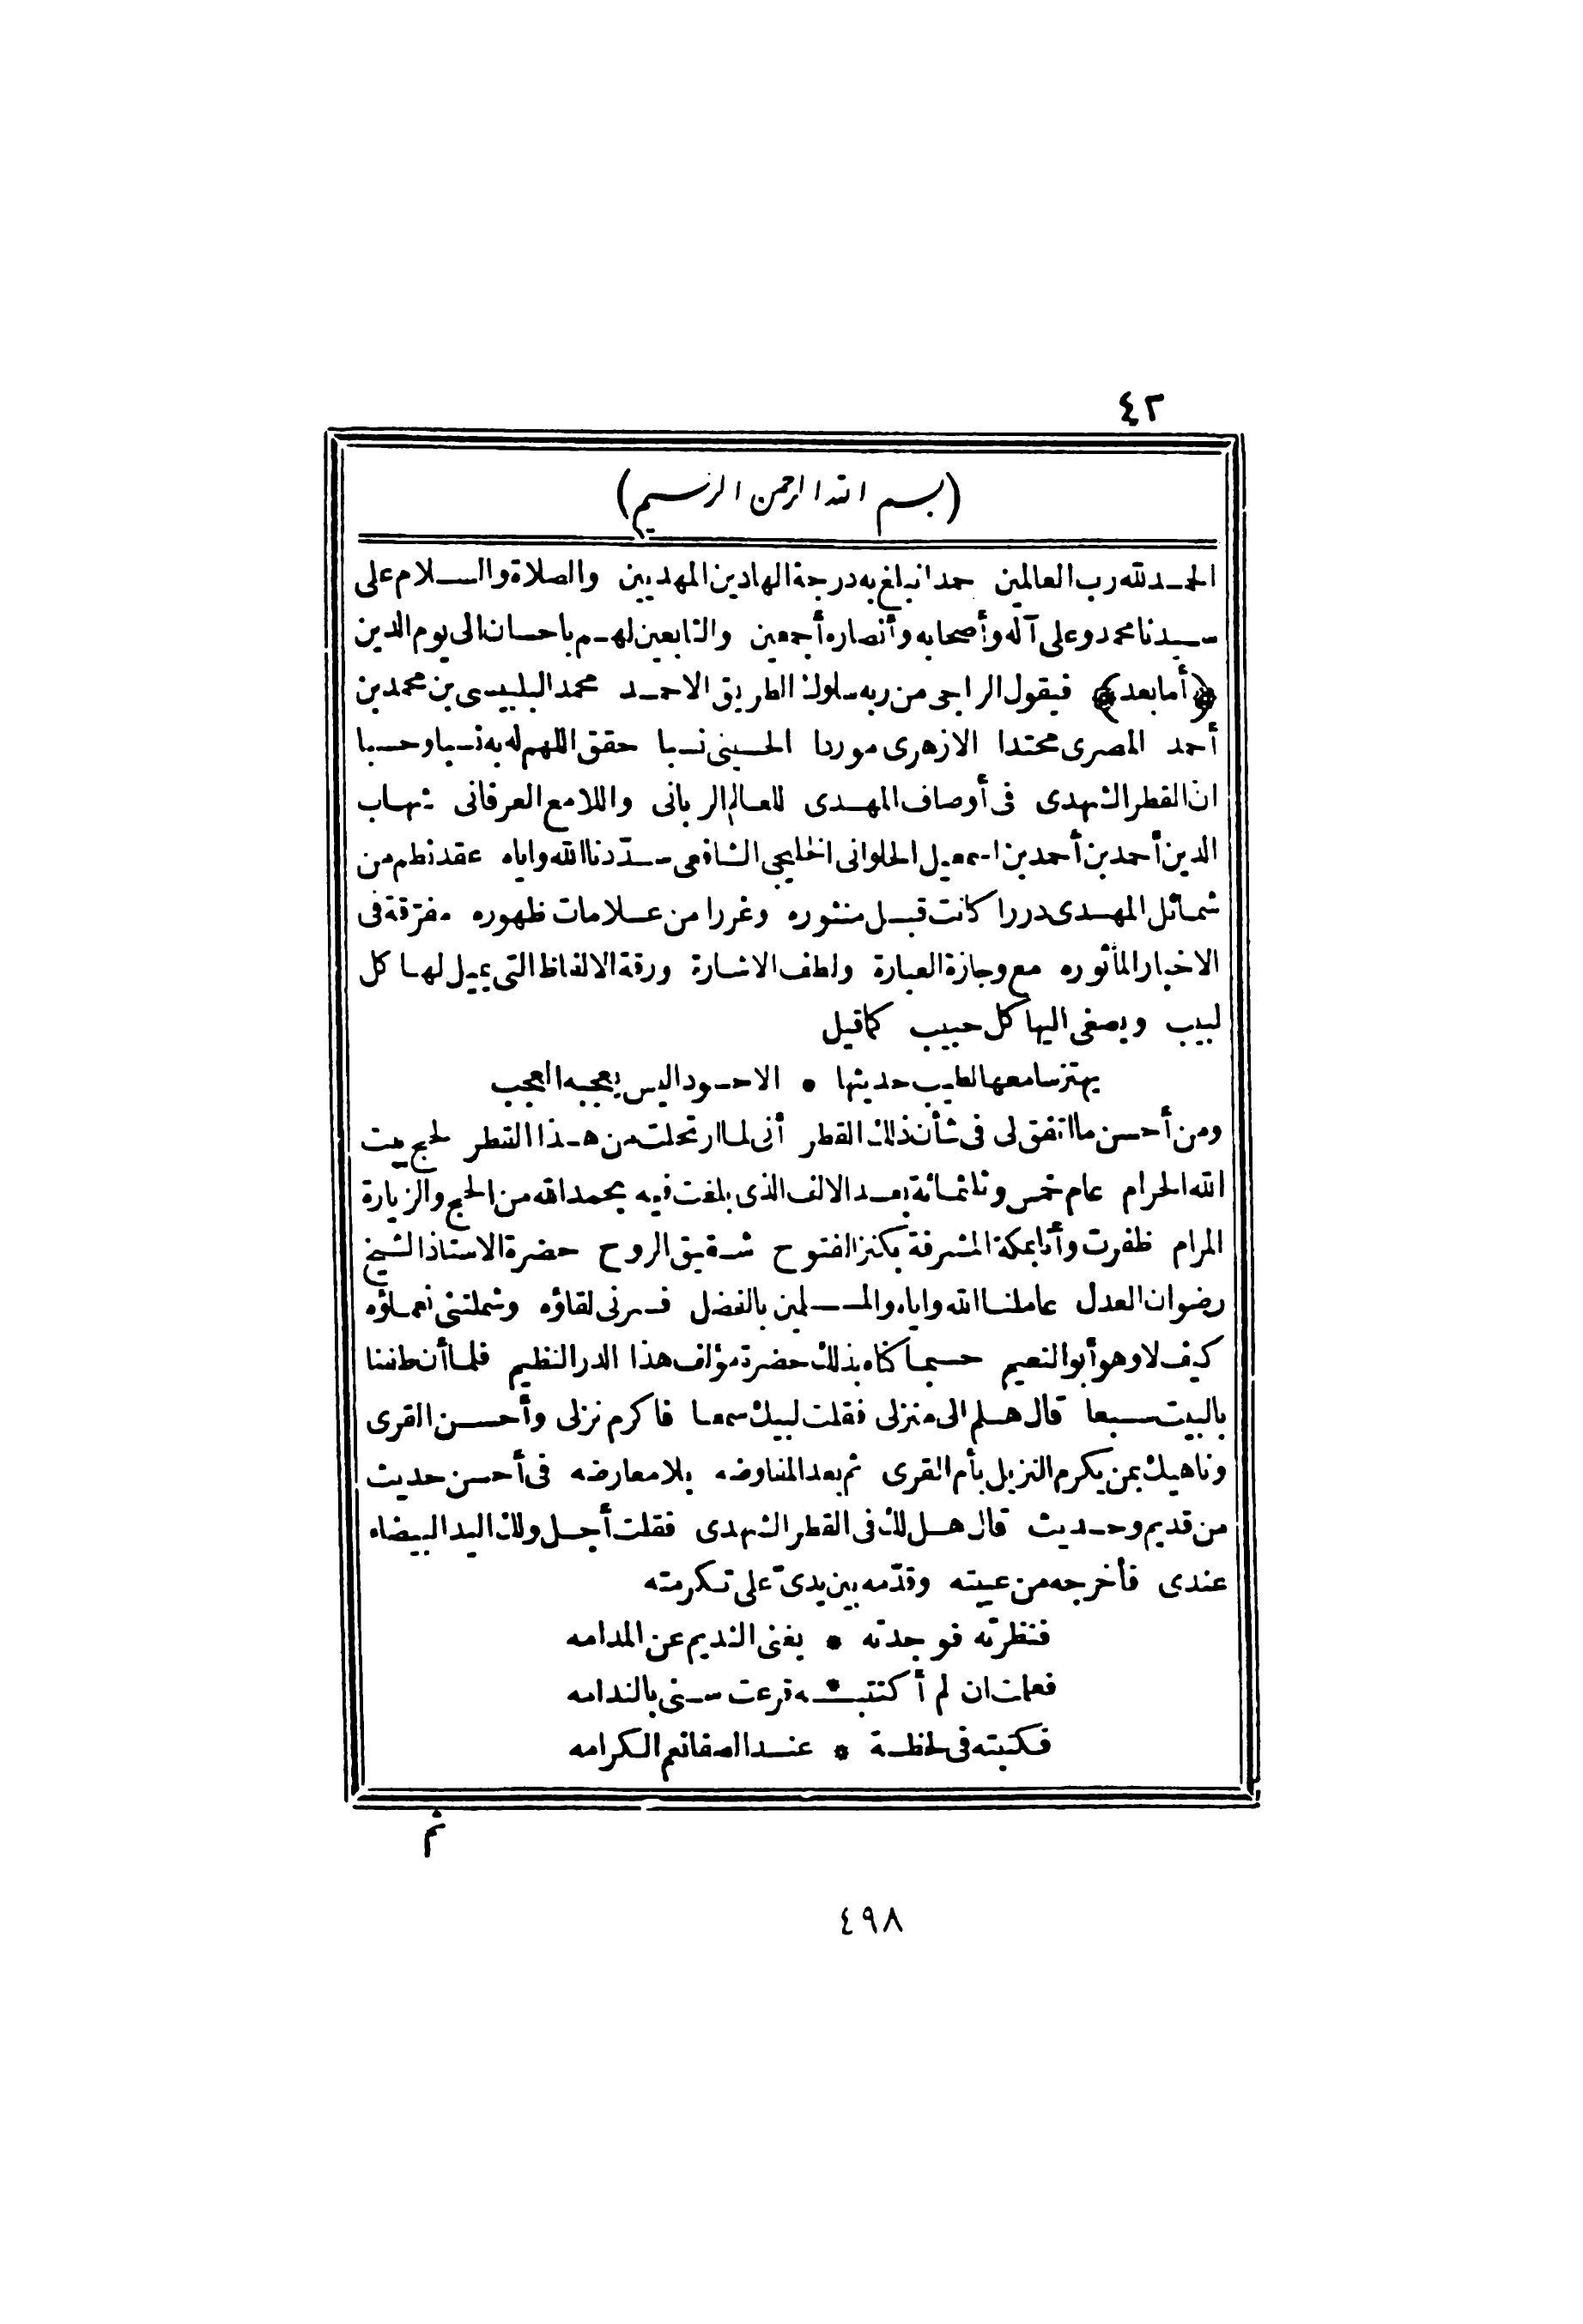 ٤٢
(بسم الله الرحمن الرحيم)
الحمد لله رب العالمين حمدا نبلغ به درجة الهادين المهديين والصلاة والسلام على
سيدنا محمد وعلى آله وأصحابه وأنصاره أجمعين والتابعين لهم باحسان الى يوم الدين
﴿أما بعد﴾ فيقول الراجى من ربه سلوك الطريق الاحمد محمد البلبيسى بن محمد بن
أحمد المصرى محتدا الازهرى موردا الحسينى نسبا حقق اللهم له به نسبا وحسبا
ان القطر الشهدى فى أوصاف المهدى للعالم الربانى واللامع العرفانى شهاب
الدين أحمد بن أحمد بن اسمعيل الحلوانى الخليجى الشافعى سدّدنا الله واياه عقد نظم من
شمائل المهدى دررا كانت قبل منثوره وغررا من علامات ظهوره مفرّقة فى
الاخبار المأثوره مع وجازة العبارة ولطف الاشارة ورقة الالفاظ التى يميل لها كل
لبيب ويصغى اليها كل حبيب كما قيل
يهتز سامعها لطيب حديثها * الاحسود اليس يعجبه العجب
ومن أحسن ما اتفق لى فى شأن ذلك القطر أنى لما ارتحلت من هذا القطر لحج بيت
الله الحرام عام خمس وثلثمائة بعد الالف الذى بلغت فيه بحمد الله من الحج والزيارة
المرام ظفرت وأنا بمكة المشرفة بكنز الفتوح شقيق الروح حضرة الاستاذ الشيخ
رضوان العدل عاملنا الله واياه والمسلمين بالفضل فسرنى لقاؤه وشملتنى نعماؤه
كيف لا وهو أبو النعيم حسبما كناه بذلك حضرة مؤلف هذا الدر النظيم فلما أن طفنا
بالبيت سبعا قال هلم الى منزلى فقلت لبيك سمعا فاكرم نزلى وأحسن القرى
وناهيك بمن يكرم النزيل بأم القرى ثم بعد المفاوضه بلا معارضه فى أحسن حديث
من قديم وحديث قال هل لك فى القطر الشهدى فقلت أجل ولك اليد البيضاء
عندى فأخرجه من عيبته وقدّمه بين يدىّ على تكرمته
فنظرته فوجدته * يغنى النديم عن المدامه
فعلمت ان لم أكتتبـه * قرعت سنى بالندامه
فكتبته فى لحظة * عند الصفا نعم الكرامه
ثم
٤٩٨